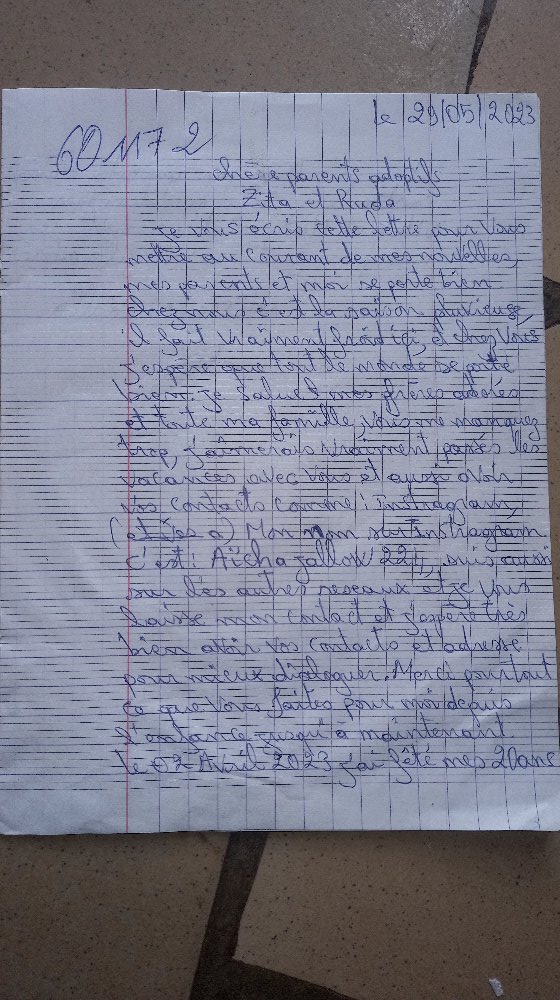 le 29/05/2023
60 117 2
chère parents adoptifs
Zita et Ruda
je vous écris cette lettre pour vous
mettre au courant de mes nouvelles,
mes parents et moi se porte bien
chez nous c'est la saison pluvieuse,
il fait vraiment froid ici, et chez vous
j'espère que tout le monde se porte
bien. je salue mes frères
et toute ma famille, vous me manquez
trop, j'aimerais vraiment passés les
vacances avec vous et aussi avoir
vos contacts comme : Instragram,
Mon nom sur instragram
c'est : Aïcha jallow 224, suis aussi
sur des autres reseaux et je vous
laisse mon contact et j'espère très
bien avoir vos contacts et adresse
pour mieux dialoguer. Merci pour tout
ce que vous faites pour moi depuis
l'enfance jusqu'à maintenant.
le 02 Avril 2023 j'ai fêté mes 20ans